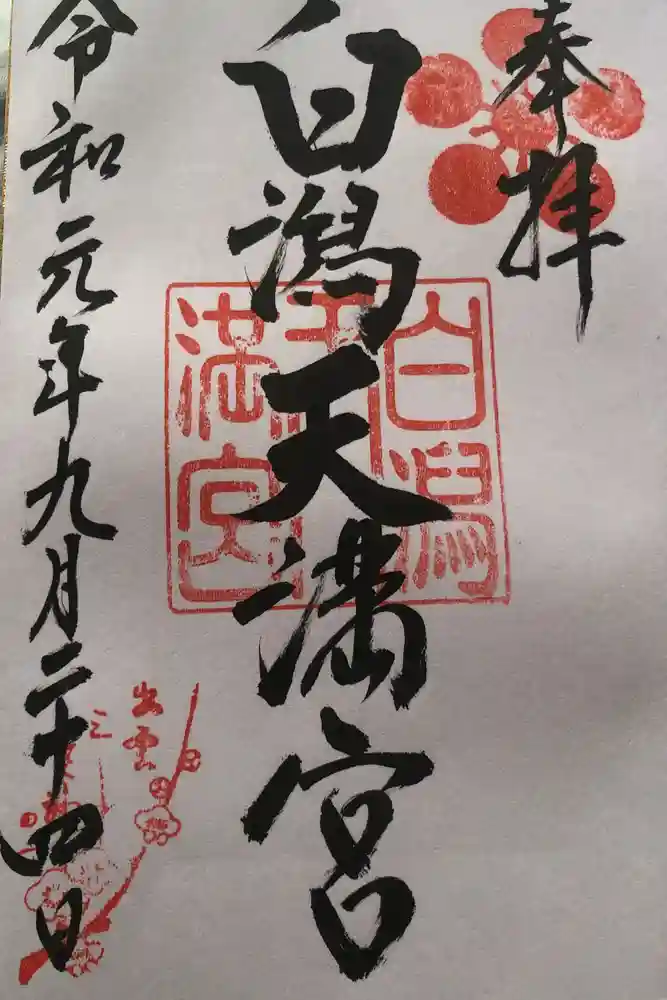 奉拝
白潟天満宮
白潟天満宮
令和元年九月二十四日
出雲
三